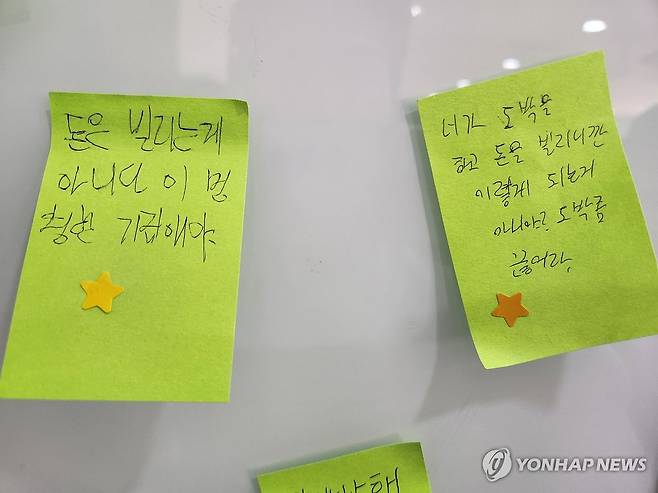 돈은 빌리는게
아니다 이 멍
청한 기랍애야
너가 도박을
하고 돈을 빌리니깐
이렇게 되는거
아니야! 도박좀
끊어라,
YONHAP NEWS